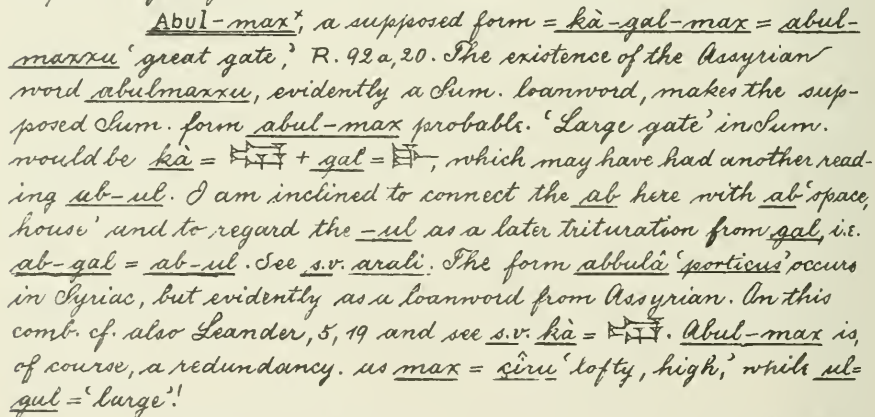 Abul-max×, a supposed form = kà-gal-max = abul-
maxxu 'great gate,' R. 92a, 20. The existence of the Assyrian
word abulmaxxu, evidently a Sum. loanword, makes the sup-
posed Sum. form abul-max probable. 'Large gate' in Sum.
would be kà = 𒆍 + gal = 𒃲, which may have had another read-
ing ub-ul. I am inclined to connect the ab here with ab 'space,
house' and to regard the -ul as a later trituration from gal, i.e.
ab-gal = ab-ul. See s.v. arali. The form abbulâ 'porticus' occurs
in Syriac, but evidently as a loanword from Assyrian. On this
comb. cf. also Leander, 5, 19 and see s.v. kà = 𒆍. Abul-max is,
of course, a redundancy. as max = çîru 'lofty, high,' while ul=
gul = 'large'!